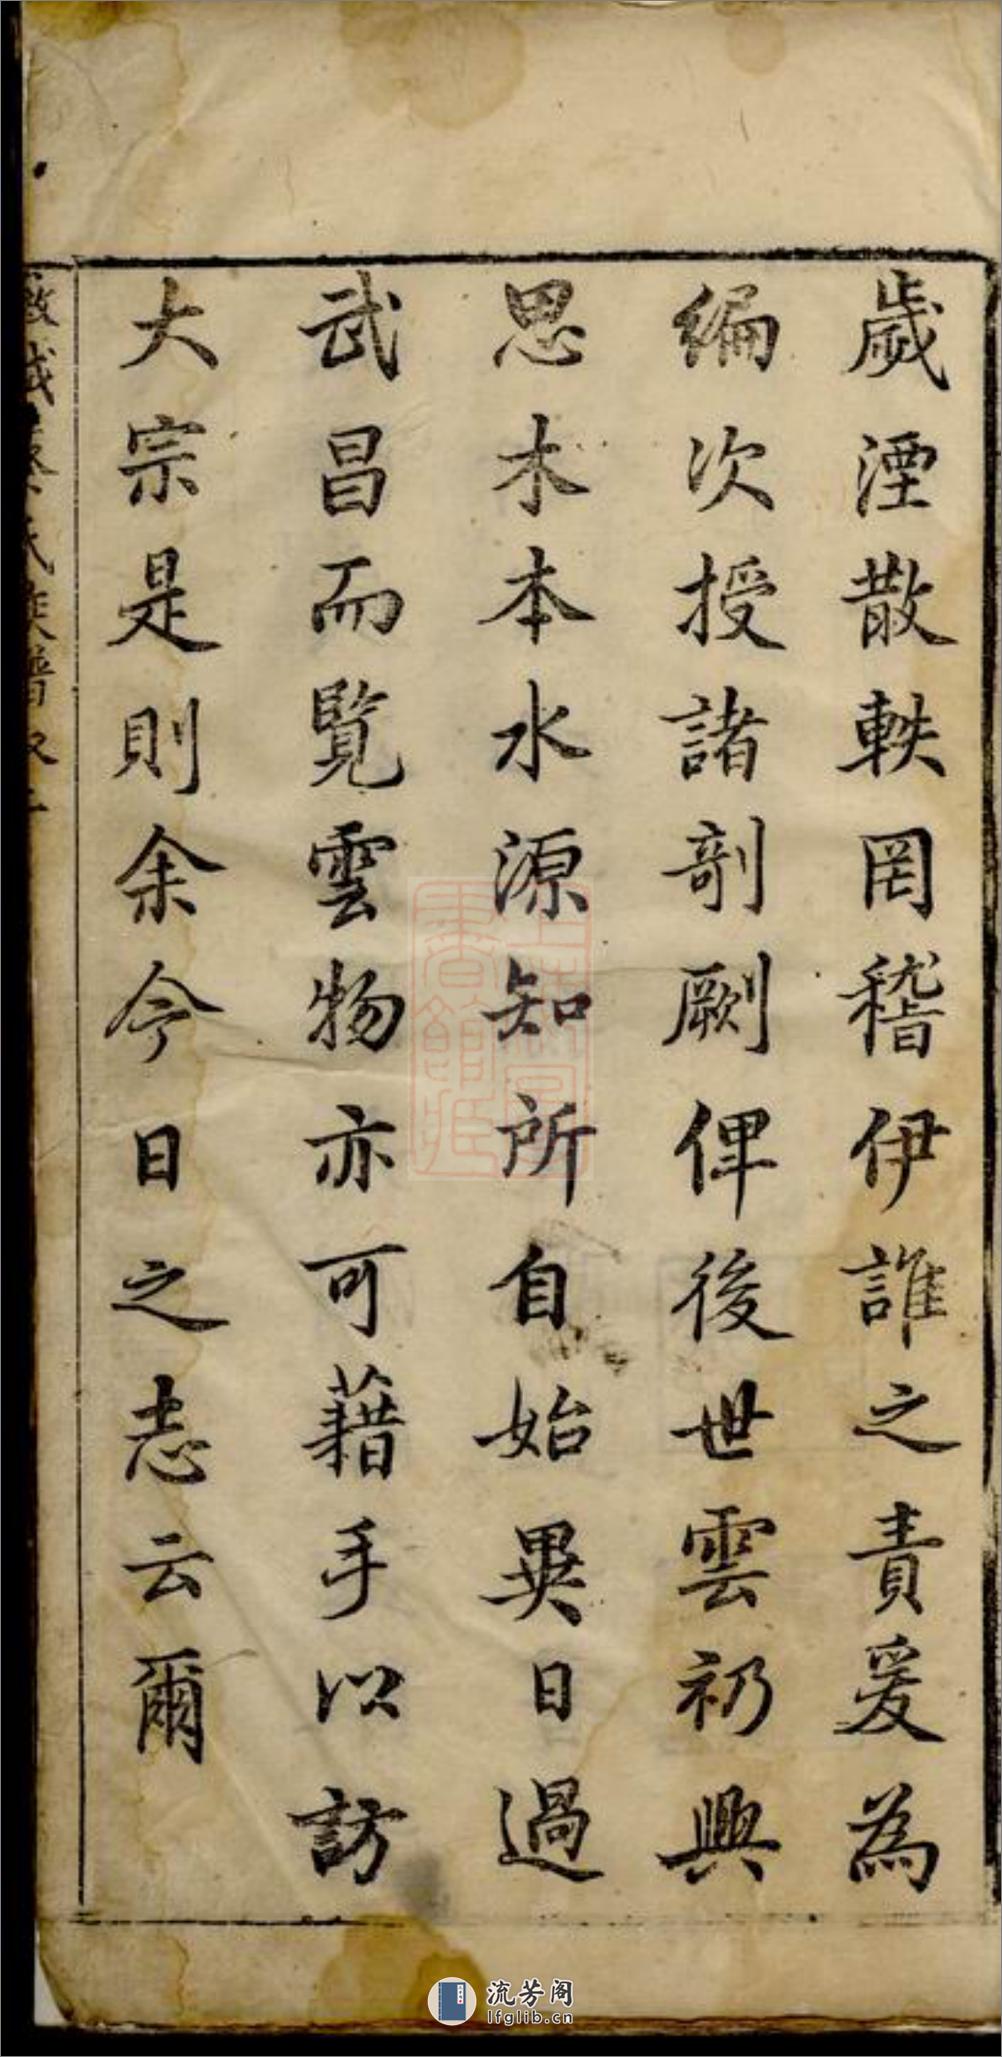 歲湮散軼罔稽伊誰之責爰為
編次授諸剞劂俾後世雲礽興
思木本水源知所自始異日過
武昌而覽雲物亦可藉手以訪
大宗是則余今日之志云爾
氏族譜
流芳阁
lfglib.cn